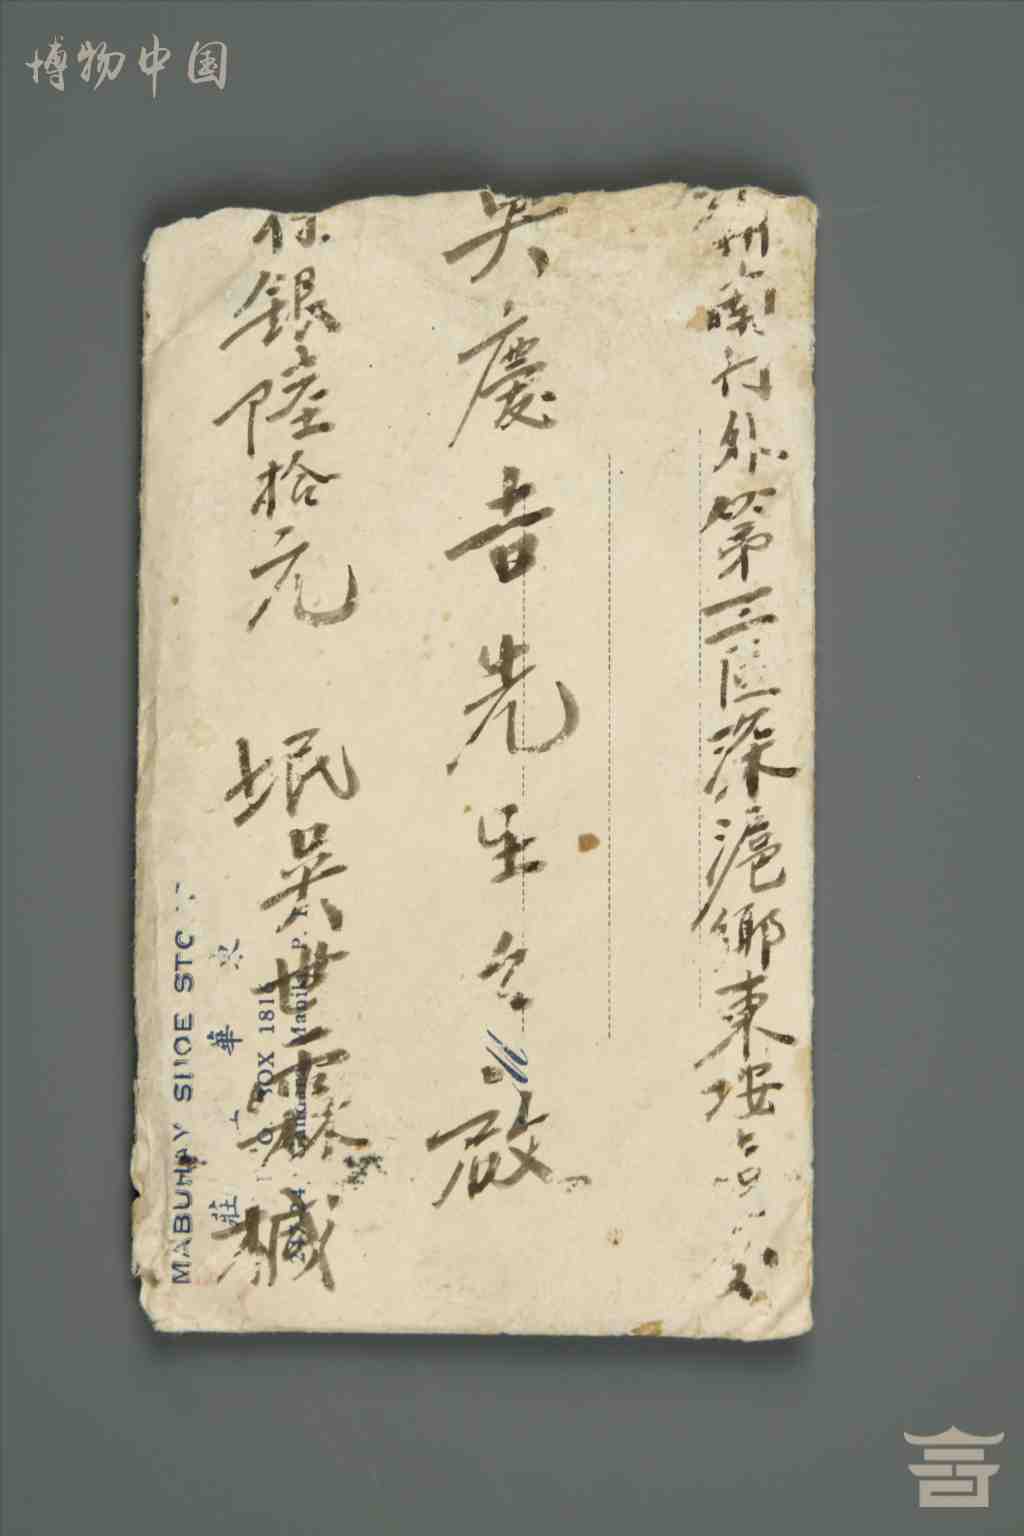 博物中国
州南门外第三區深滬鄉東垵
吳慶吉先生台啟
銀陸拾元 垊吳世霖緘
MABUHAY SHOE STO
東華工莊
P. O. BOX 181
Manila P.